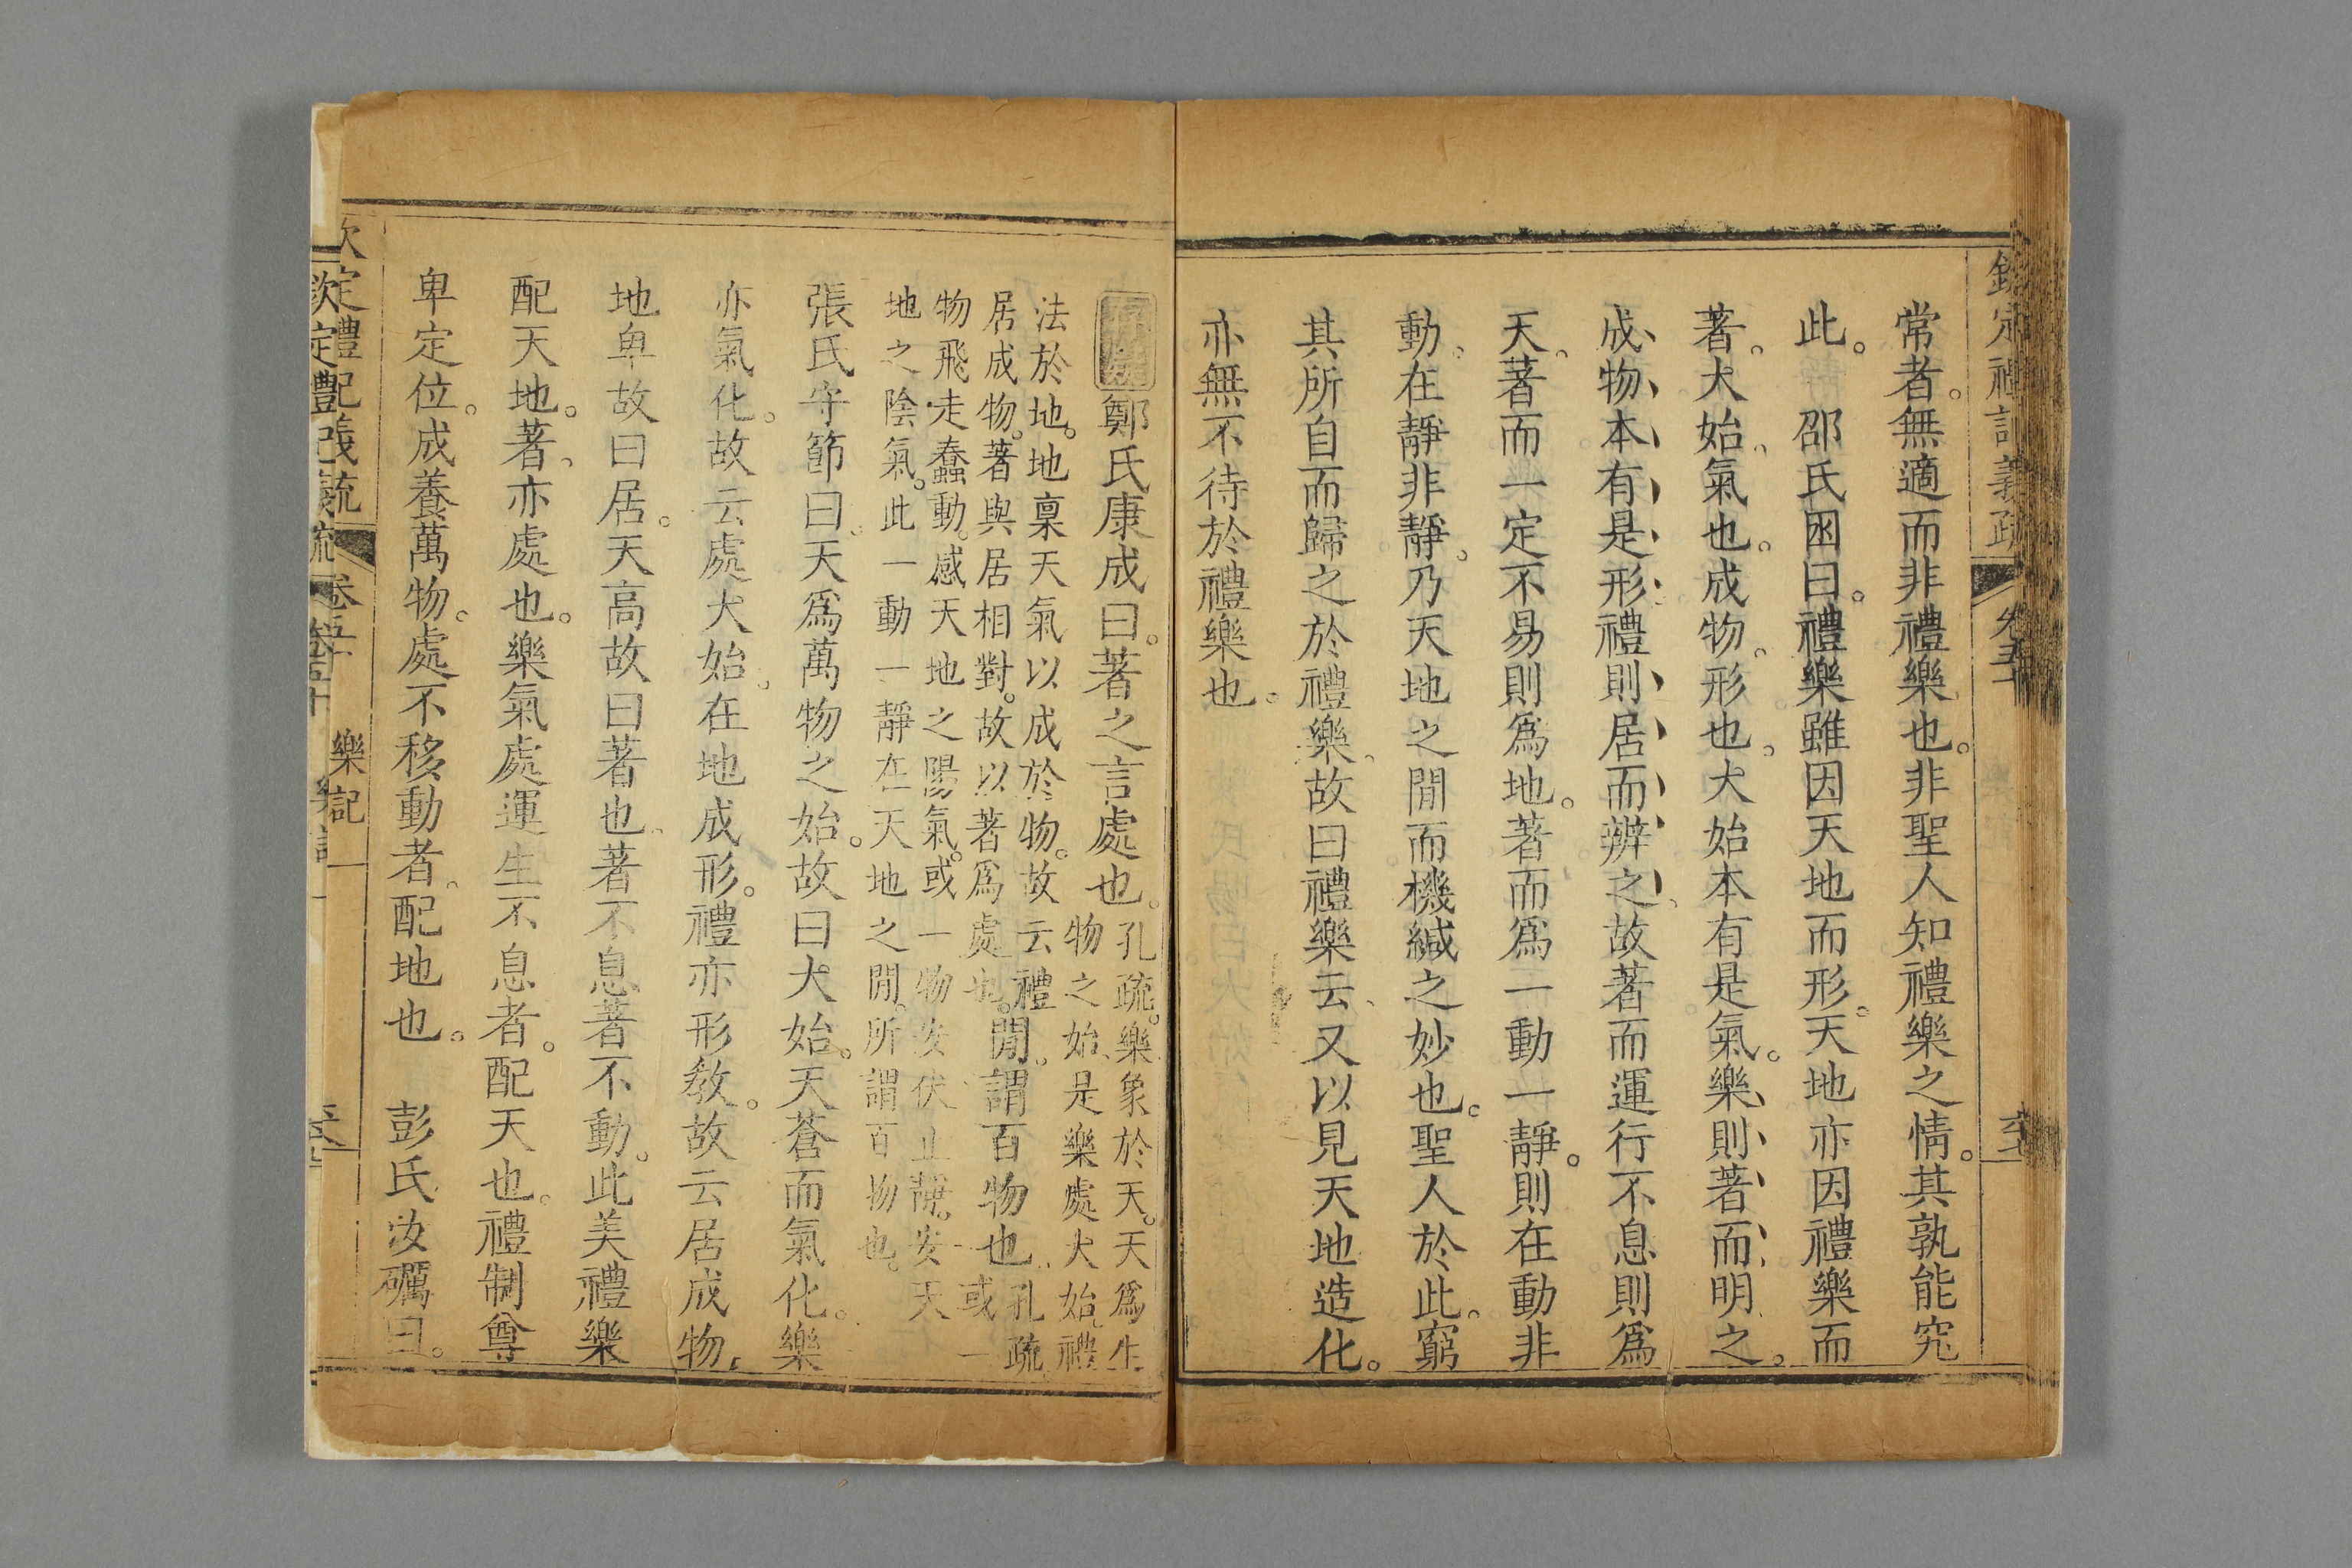 欽定禮記義疏 卷五十
常者。無適而非禮樂也。非聖人知禮樂之情。其孰能究
此。 邵氏囦曰。禮樂雖因天地而形。天地亦因禮樂而
著。大始、氣也。成物。形也。大始本有是氣。樂則著而明之。
成物本有是形禮則居而辨之、故著而運行不息則爲
天、著而一定不易則爲地。著而爲一動一靜。則在動非
動、在靜非靜。乃天地之閒而機緘之妙也。聖人於此。窮
其所自而歸之於禮樂、故曰禮樂云、又以見天地造化。
亦無不待於禮樂也。
鄭氏康成曰。著之言處也。孔疏。樂象於天。天爲生
物之始、是樂處大始。禮
法於地。地稟天氣以成於物。故云禮
居成物。著與居相對。故以著爲處也。
閒。謂百物也。孔疏
或一
物飛走蠢動。感天地之陽氣。或一物安伏止靜。安天
地之陰氣。此一動一靜在天地之閒。所謂百物也。
張氏守節曰。天爲萬物之始。故曰大始。天蒼而氣化。樂
亦氣化。故云處大始。在地成形。禮亦形教。故云居成物。
地卑故曰居。天高故曰著也、著不息著不動。此美禮樂
配天地。著、亦處也。樂氣處運生不息者。配天也。禮制尊
卑定位。成養萬物。處不移動者。配地也。 彭氏汝礪曰。
欽定禮記義疏 卷五十 樂記